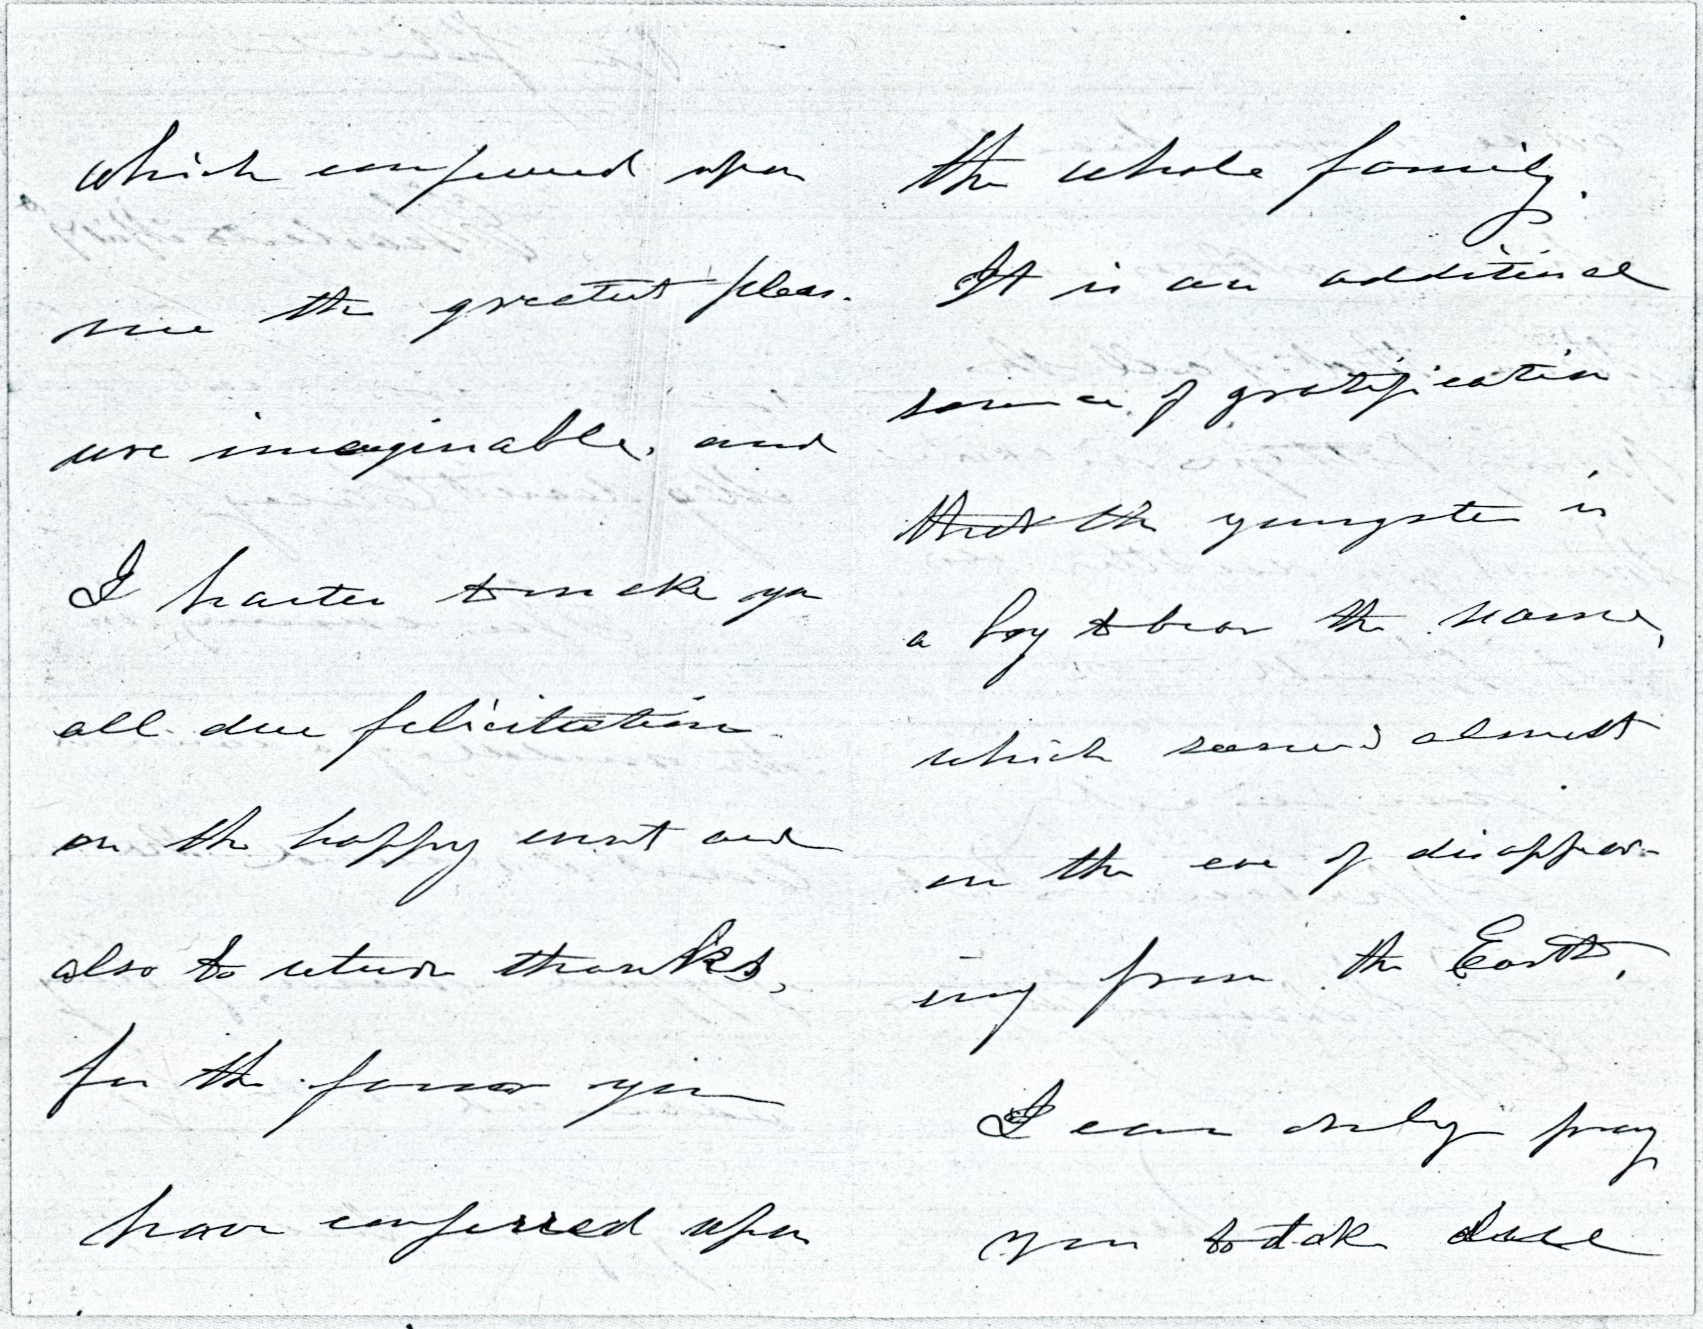 which conferred upon
me the greatest pleas-
ure imaginable, and
I hasten to make you
all due felicitation
on the happy event and
also to return thanks,
for the favor you
have conferred upon
the whole family.
It is an additional
source of gratification
that the youngster is
a boy to bear the name,
which seemed almost
on the eve of disappear-
ing from the Earth.
I can only pray
you to take due